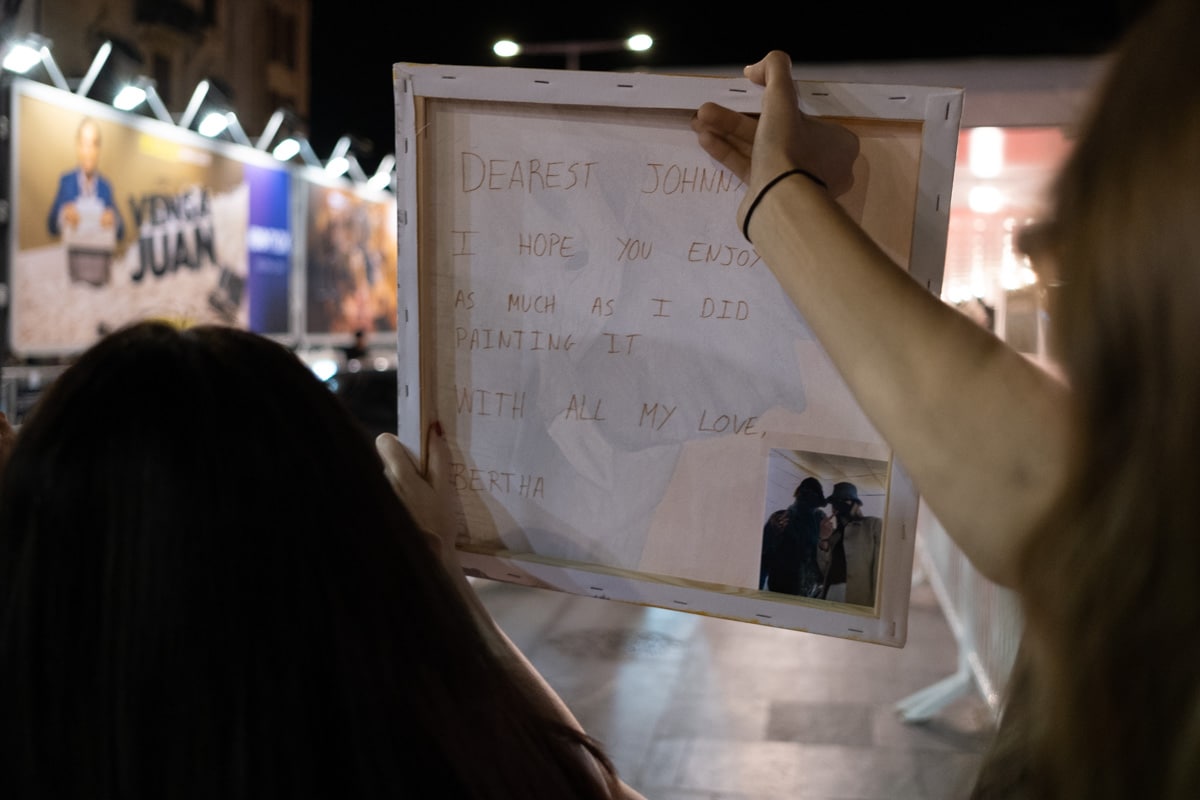 VENGA
JUAN
DEAREST JOHNNY
I HOPE YOU ENJOY
AS MUCH AS I DID
PAINTING IT
WITH ALL MY LOVE,
BERTHA